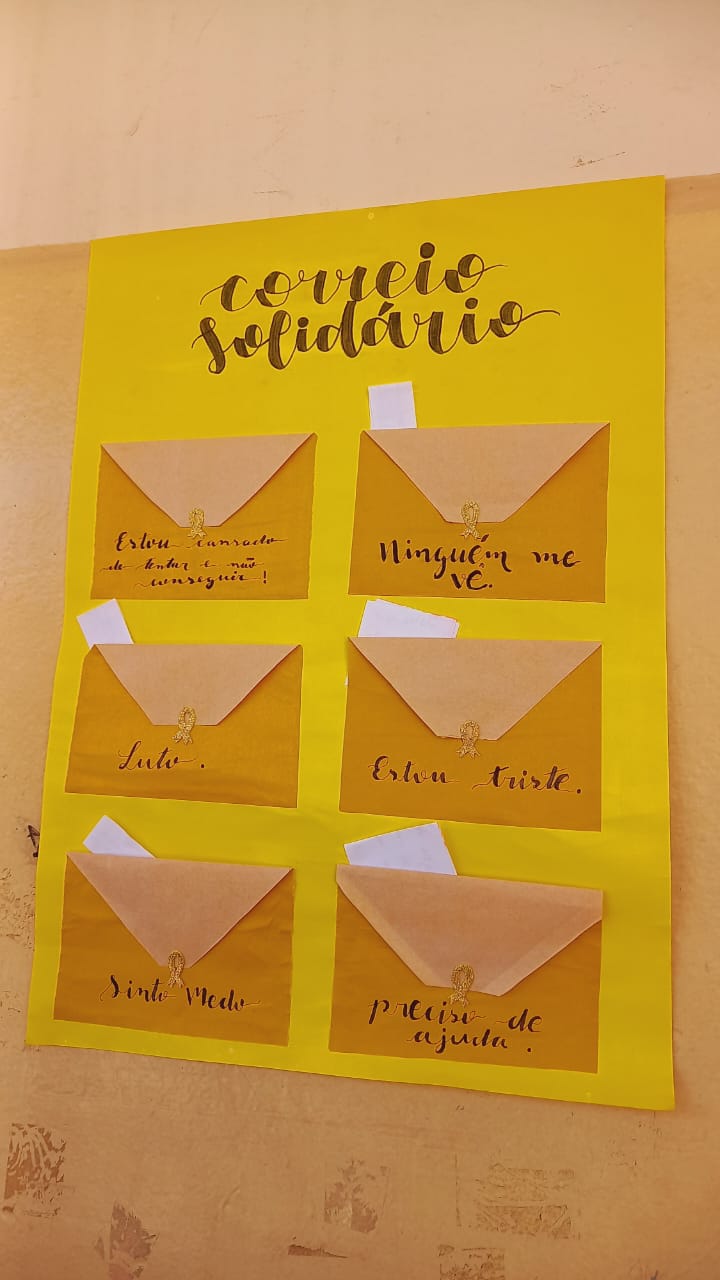 correio
solidário
Estou cansado
de tentar e não
conseguir!
Ninguém me
vê.
Luto.
Estou triste.
Sinto Medo
preciso de
ajuda.